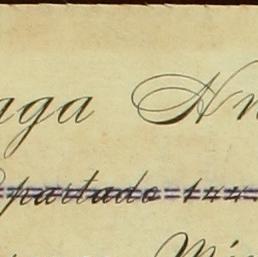 aga Hn
partado 144.
Mé